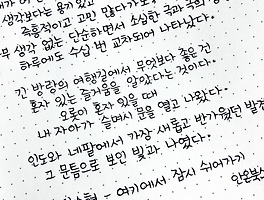 생각보다는 용기 있고
즉흥적이고 고민 많다가도
무 생각 없는 단순하면서 소심한 극과 극의
하루에도 수십 번 교차되어 나타났다.
긴 방랑의 여행길에서 무엇보다 좋은 건
혼자 있는 즐거움을 알았다는 것이다.
오롯이 혼자 있을 때
내 자아가 슬며시 문을 열고 나왔다.
인도와 네팔에서 가장 새롭고 반가웠던 발견
그 무듬으로 보인 빛과 나였다.
여기에서 잠시 쉬어가기